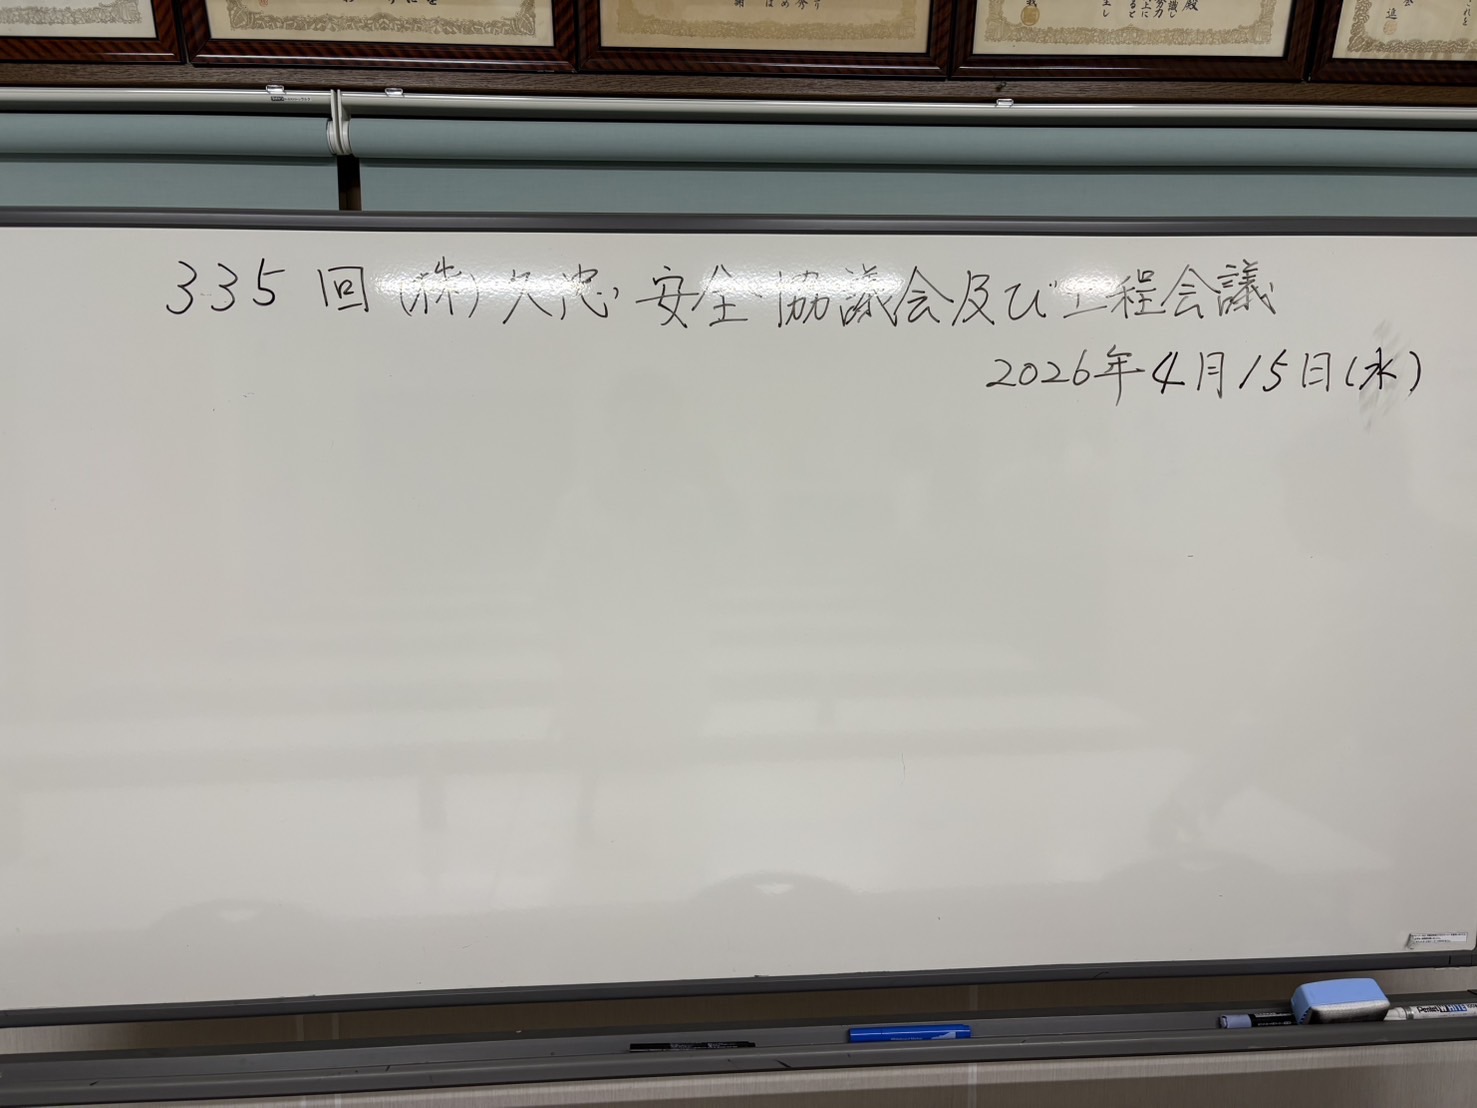 335回 (株)久忠 安全協議会及び工程会議
2026年4月15日(水)